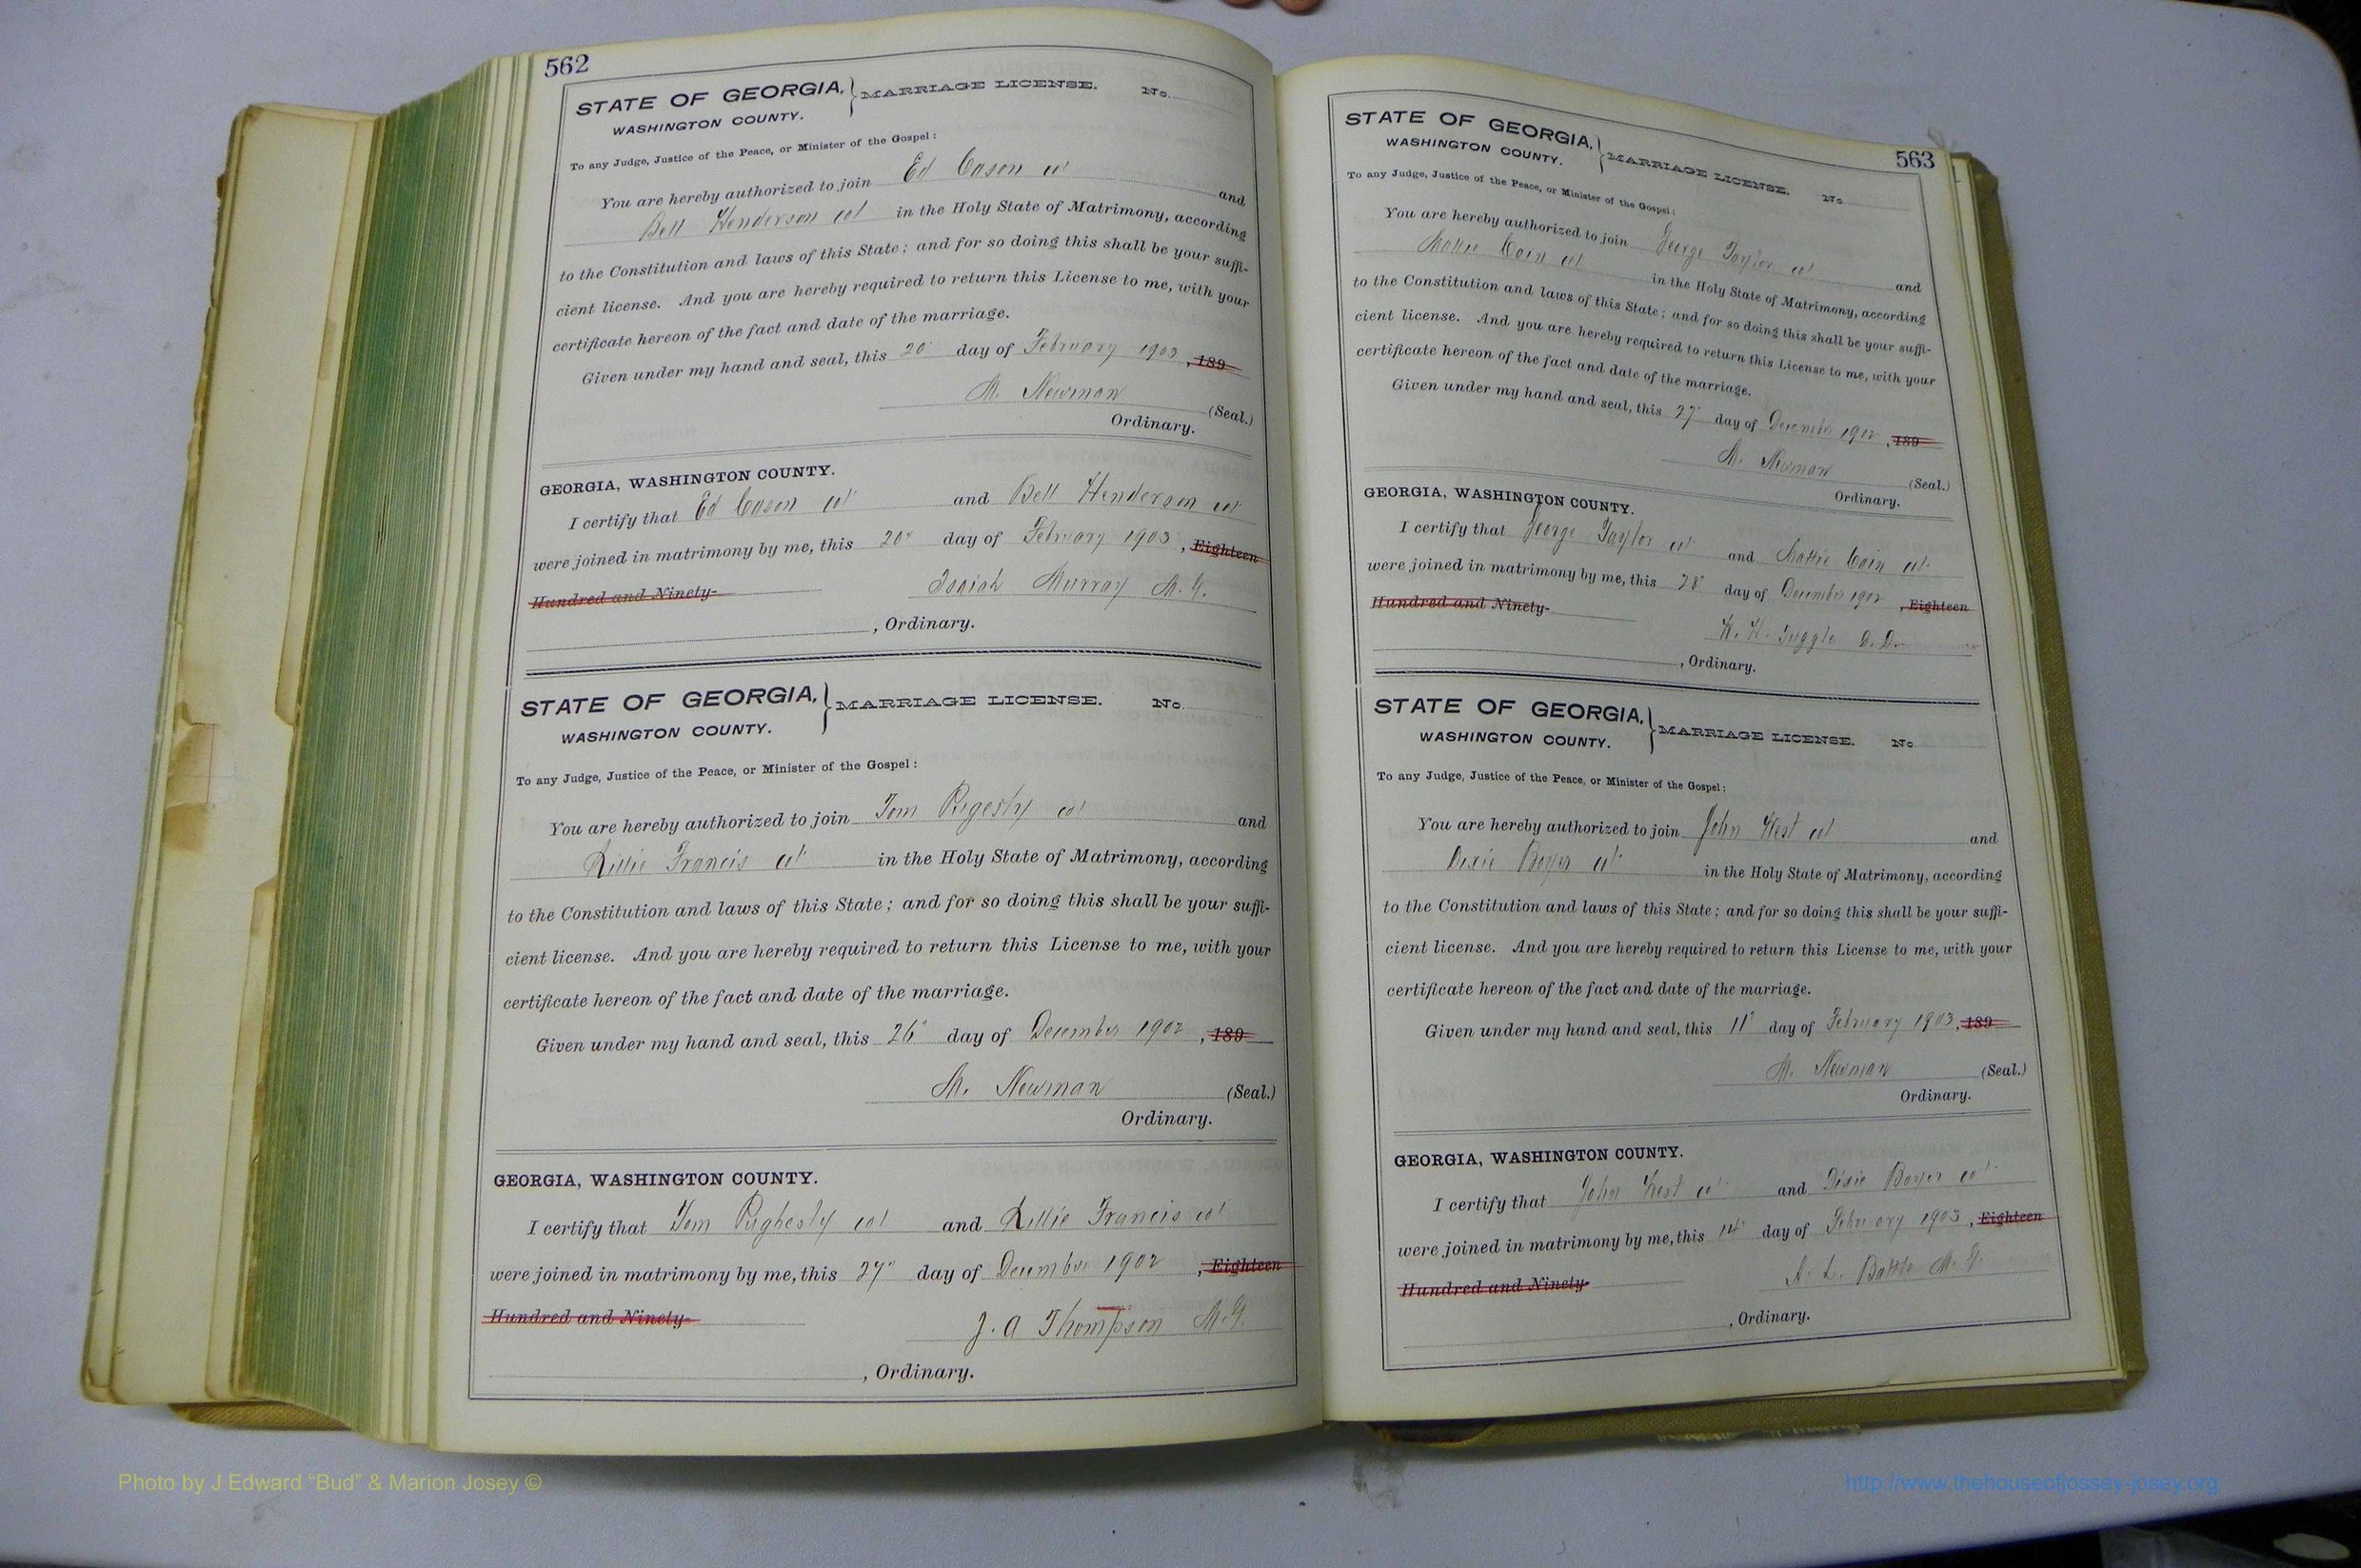 562
STATE OF GEORGIA, } MARRIAGE LICENSE. No.
WASHINGTON COUNTY.
To any Judge, Justice of the Peace, or Minister of the Gospel:
You are hereby authorized to join Ed Cason col and
Bell Henderson col in the Holy State of Matrimony, according
to the Constitution and laws of this State; and for so doing this shall be your suffi-
cient license. And you are hereby required to return this License to me, with your
certificate hereon of the fact and date of the marriage.
Given under my hand and seal, this 20" day of February 1903, 189
M. Newman (Seal.)
Ordinary.
GEORGIA, WASHINGTON COUNTY.
I certify that Ed Cason col and Bell Henderson col
were joined in matrimony by me, this 20" day of February 1903, Eighteen
Hundred and Ninety- Isaiah Murray M.G.
, Ordinary.
STATE OF GEORGIA, } MARRIAGE LICENSE. No.
WASHINGTON COUNTY.
To any Judge, Justice of the Peace, or Minister of the Gospel:
You are hereby authorized to join Tom col and
Lillie Francis col in the Holy State of Matrimony, according
to the Constitution and laws of this State; and for so doing this shall be your suffi-
cient license. And you are hereby required to return this License to me, with your
certificate hereon of the fact and date of the marriage.
Given under my hand and seal, this 26" day of December 1902, 189
M. Newman (Seal.)
Ordinary.
GEORGIA, WASHINGTON COUNTY.
I certify that Tom col and Lillie Francis col
were joined in matrimony by me, this 27" day of December 1902, Eighteen
Hundred and Ninety- J. A Thompson M.G.
, Ordinary.
563
STATE OF GEORGIA, } MARRIAGE LICENSE. No.
WASHINGTON COUNTY.
To any Judge, Justice of the Peace, or Minister of the Gospel:
You are hereby authorized to join George Taylor col and
Mattie Cain col in the Holy State of Matrimony, according
to the Constitution and laws of this State; and for so doing this shall be your suffi-
cient license. And you are hereby required to return this License to me, with your
certificate hereon of the fact and date of the marriage.
Given under my hand and seal, this 27" day of December 1902, 189
M. Newman (Seal.)
Ordinary.
GEORGIA, WASHINGTON COUNTY.
I certify that George Taylor col and Mattie Cain col
were joined in matrimony by me, this 28" day of December 1902, Eighteen
Hundred and Ninety- W. H. Tuggle D.D.
, Ordinary.
STATE OF GEORGIA, } MARRIAGE LICENSE. No.
WASHINGTON COUNTY.
To any Judge, Justice of the Peace, or Minister of the Gospel:
You are hereby authorized to join John West col and
Dixie Boyer col in the Holy State of Matrimony, according
to the Constitution and laws of this State; and for so doing this shall be your suffi-
cient license. And you are hereby required to return this License to me, with your
certificate hereon of the fact and date of the marriage.
Given under my hand and seal, this 11" day of February 1903, 189
M. Newman (Seal.)
Ordinary.
GEORGIA, WASHINGTON COUNTY.
I certify that John West col and Dixie Boyer col
were joined in matrimony by me, this 14" day of February 1903, Eighteen
Hundred and Ninety- L. Battle M.G.
, Ordinary.
Photo by J Edward “Bud” & Marion Josey ©
http://www.thehouseofjossey-josey.org